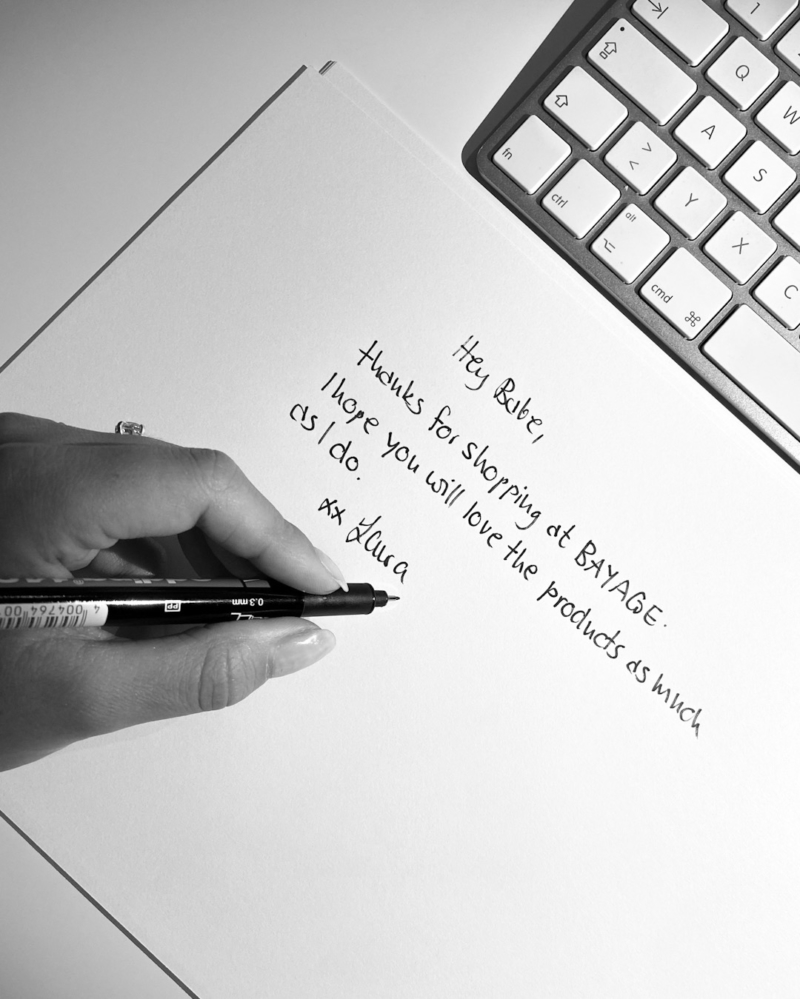 Hey Babe,
thanks for shopping at BAYAGE.
I hope you will love the products as much
as I do.
xx Laura
1
Q
W
A
S
fn
> <
Y
X
C
ctrl
alt
cmd ⌘
0.3 mm
PP
4 004764 00